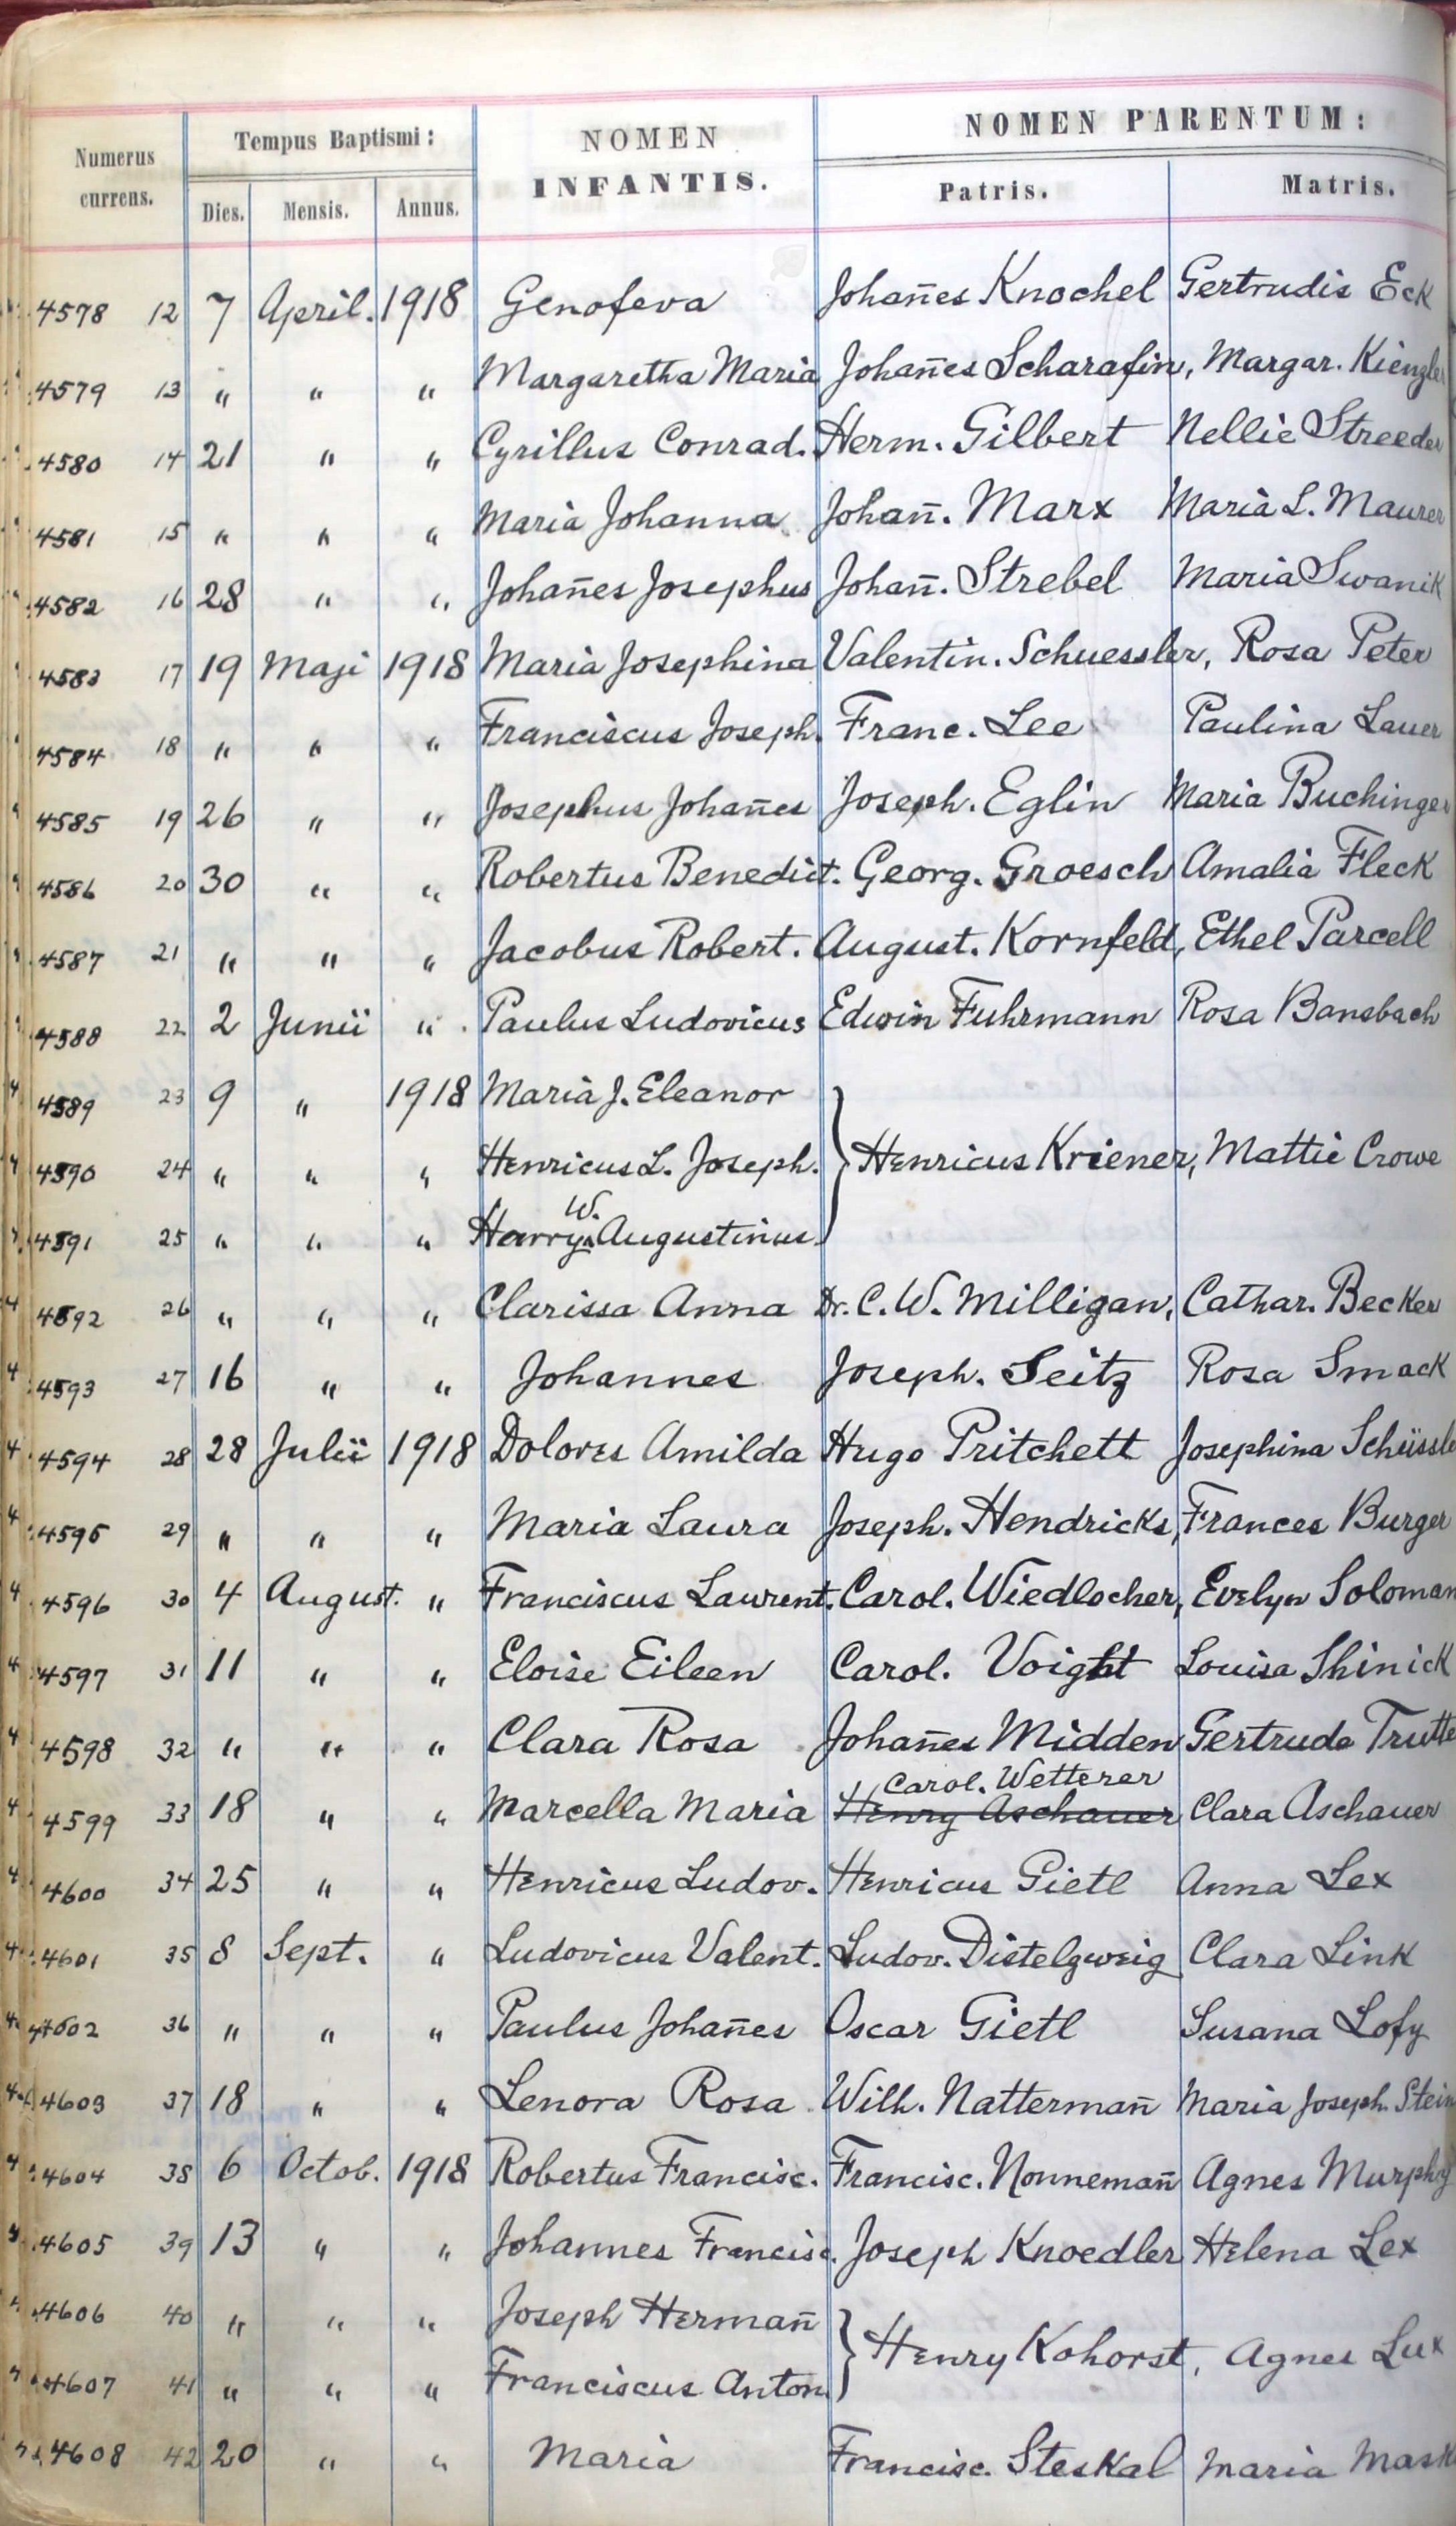 NOMEN PARENTUM:
Numerus currens. Tempus Baptismi: NOMEN INFANTIS.
Dies. Mensis. Annus. Patris. Matris.
4578 12 7 April. 1918 Genofeva Johan̄es Knochel Gertrudis Eck
4579 13 " " " Margaretha Maria Johan̄es Scharafin, Margar. Kienzle
4580 14 21 " " Cyrillus Conrad. Herm. Gilbert Nellie Streeder
4581 15 " " " Maria Johanna Johan̄. Marx Maria L. Maurer
4582 16 28 " " Johan̄es Josephus Johan̄. Strebel Maria Swanik
4583 17 19 Maji 1918 Maria Josephina Valentin. Schuessler, Rosa Peter
4584 18 " " " Franciscus Joseph. Franc. Lee Paulina Lauer
4585 19 26 " " Josephus Johan̄es Joseph. Eglin Maria Buchinger
4586 20 30 " " Robertus Benedict. Georg. Groesch Amalia Fleck
4587 21 " " " Jacobus Robert. August. Kornfeld, Ethel Parcell
4588 22 2 Junii " Paulus Ludovicus Edwin Fuhrmann Rosa Bansbach
4589 23 9 " 1918 Maria J. Eleanor
4590 24 " " " Henricus L. Joseph. } Henricus Kriener, Mattie Crowe
4591 25 " " " Harry W. Augustinus.
4592 26 " " " Clarissa Anna Dr. C. W. Milligan, Cathar. Becker
4593 27 16 " " Johannes Joseph. Seitz Rosa Smack
4594 28 28 Julii 1918 Dolores Amilda Hugo Pritchett Josephina Schüssle
4595 29 " " " Maria Laura Joseph. Hendricks, Frances Burger
4596 30 4 August. " Franciscus Laurent. Carol. Wiedlocher, Evelyn Soloman
4597 31 11 " " Eloise Eileen Carol. Voight Louisa Shinick
4598 32 " " " Clara Rosa Johan̄es Midden Gertrude Trutte
Carol. Wetterer
4599 33 18 " " Marcella Maria Henry Aschauer Clara Aschauer
4600 34 25 " " Henricus Ludov. Henricus Gietl Anna Lex
4601 35 8 Sept. " Ludovicus Valent. Ludov. Distelzweig Clara Link
4602 36 " " " Paulus Johan̄es Oscar Gietl Susana Lofy
4603 37 18 " " Lenora Rosa Wilh. Natterman̄ Maria Joseph. Stein
4604 38 6 Octob. 1918 Robertus Francisc. Francisc. Nonneman̄ Agnes Murphy
4605 39 13 " " Johannes Francisc. Joseph Knoedler Helena Lex
4606 40 " " " Joseph Herman̄ } Henry Kohorst, Agnes Lux
4607 41 " " " Franciscus Anton.
4608 42 20 " " Maria Francisc. Steskal Maria Mask